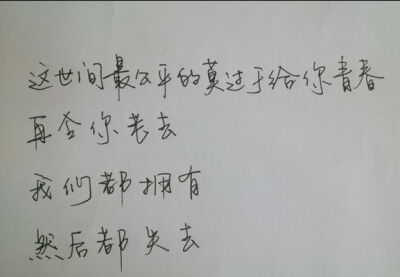 这世间最公平的莫过于给你青春
再含你老去
我们都拥有
然后都失去